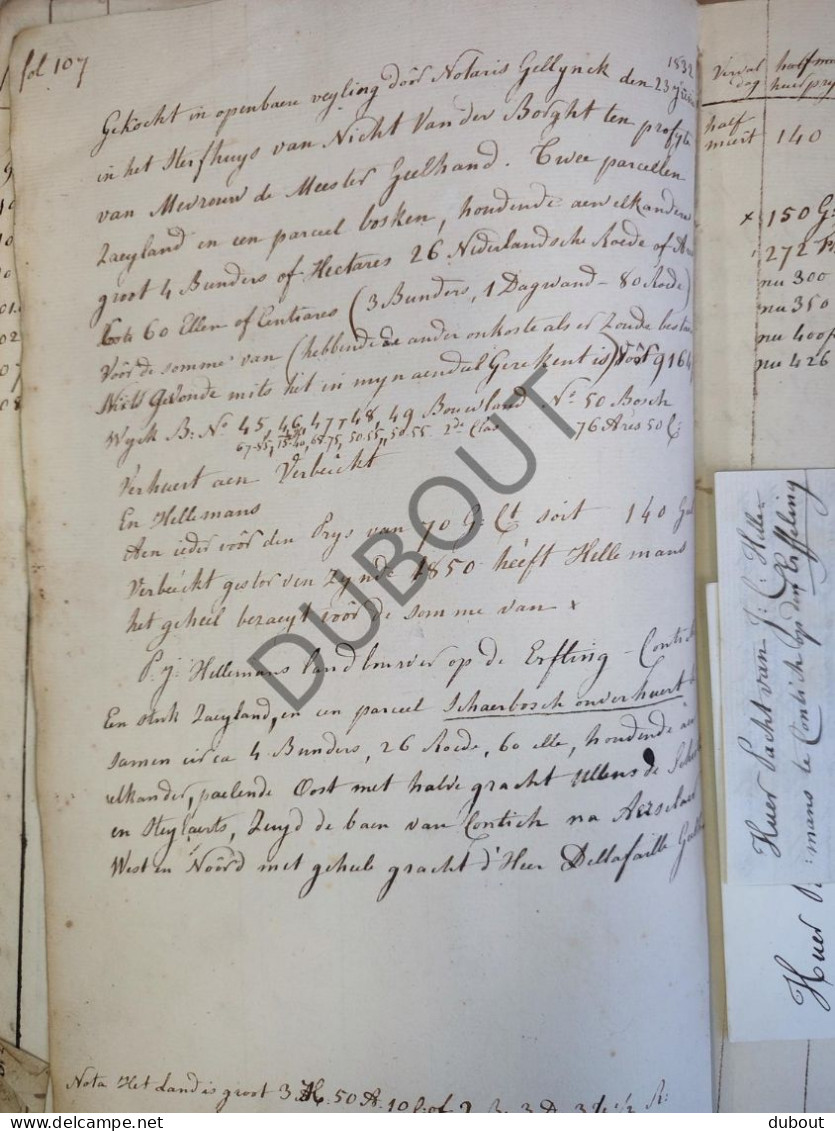 fol 107
1832
Gekocht in openbaere veyling door Notaris Gellynck den 23
in het sterfhuys van Nicht Van der Borght ten profyte
van Mevrouw de Meester Geelhand. Twee parcellen
Zaeyland en een parceel bosken, houdende aen elkanderen
groot 4 Bunders of Hectares 26 Nederlandsche Roede of
60 Ellen of Centiares (3 Bunders, 1 Dagwand - 80 Roede)
voor de somme van (hebbende de ander onkoste als er Zoude
mits het in myn aendeel Gerekent is) voor 9164
Wyck B: No 45, 46, 47 48, 49 Bouwland No 50 Bosch
50-55, 50-55 2de Clas 76 Ares 50 C:
Verhuert aen Verbeickt
En Hellemans
Aen ieder voor den Prys van 70 G: Ct soit 140 Gul
Verbeickt gestorven Zynde 1850 heeft Hellemans
het geheel bezaeyt voor de somme van x
P. J. Hellemans landbouwer op de Erfling - Contich
Een stuk Zaeyland, en een parceel Schaerbosch onverhuert
samen circa 4 Bunders, 26 Roede, 60 elle, houdende aen
elkander, paelende Oost met halve gracht Ullens de Schoo
en Steylaerts, Zuyd de baen van Contich na Aerselaer
West en Noord met geheele gracht d'Heer Dellafaille
Nota Het Land is groot 3 H. 50 A. 10 C. of
Verval dag
half huer prys
half maert 140
x 150 G:
272 Fr
nu 300
nu 350
nu 400
nu 426
Huer Pacht van J: C: Helle
mans te Contich op den Effeling
Huer
DUBOUT
www.delcampe.net
dubout